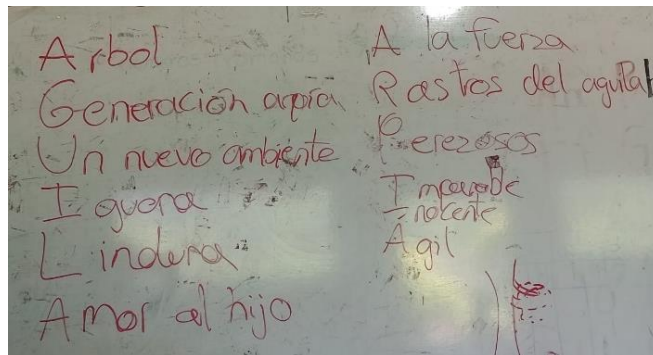 Arbol
Generación arpía
Un nuevo ambiente
Iguana
Lindera
Amor al hijo
A la fuerza
Rastros del aguila
Perezosos
Inocente
Ágil